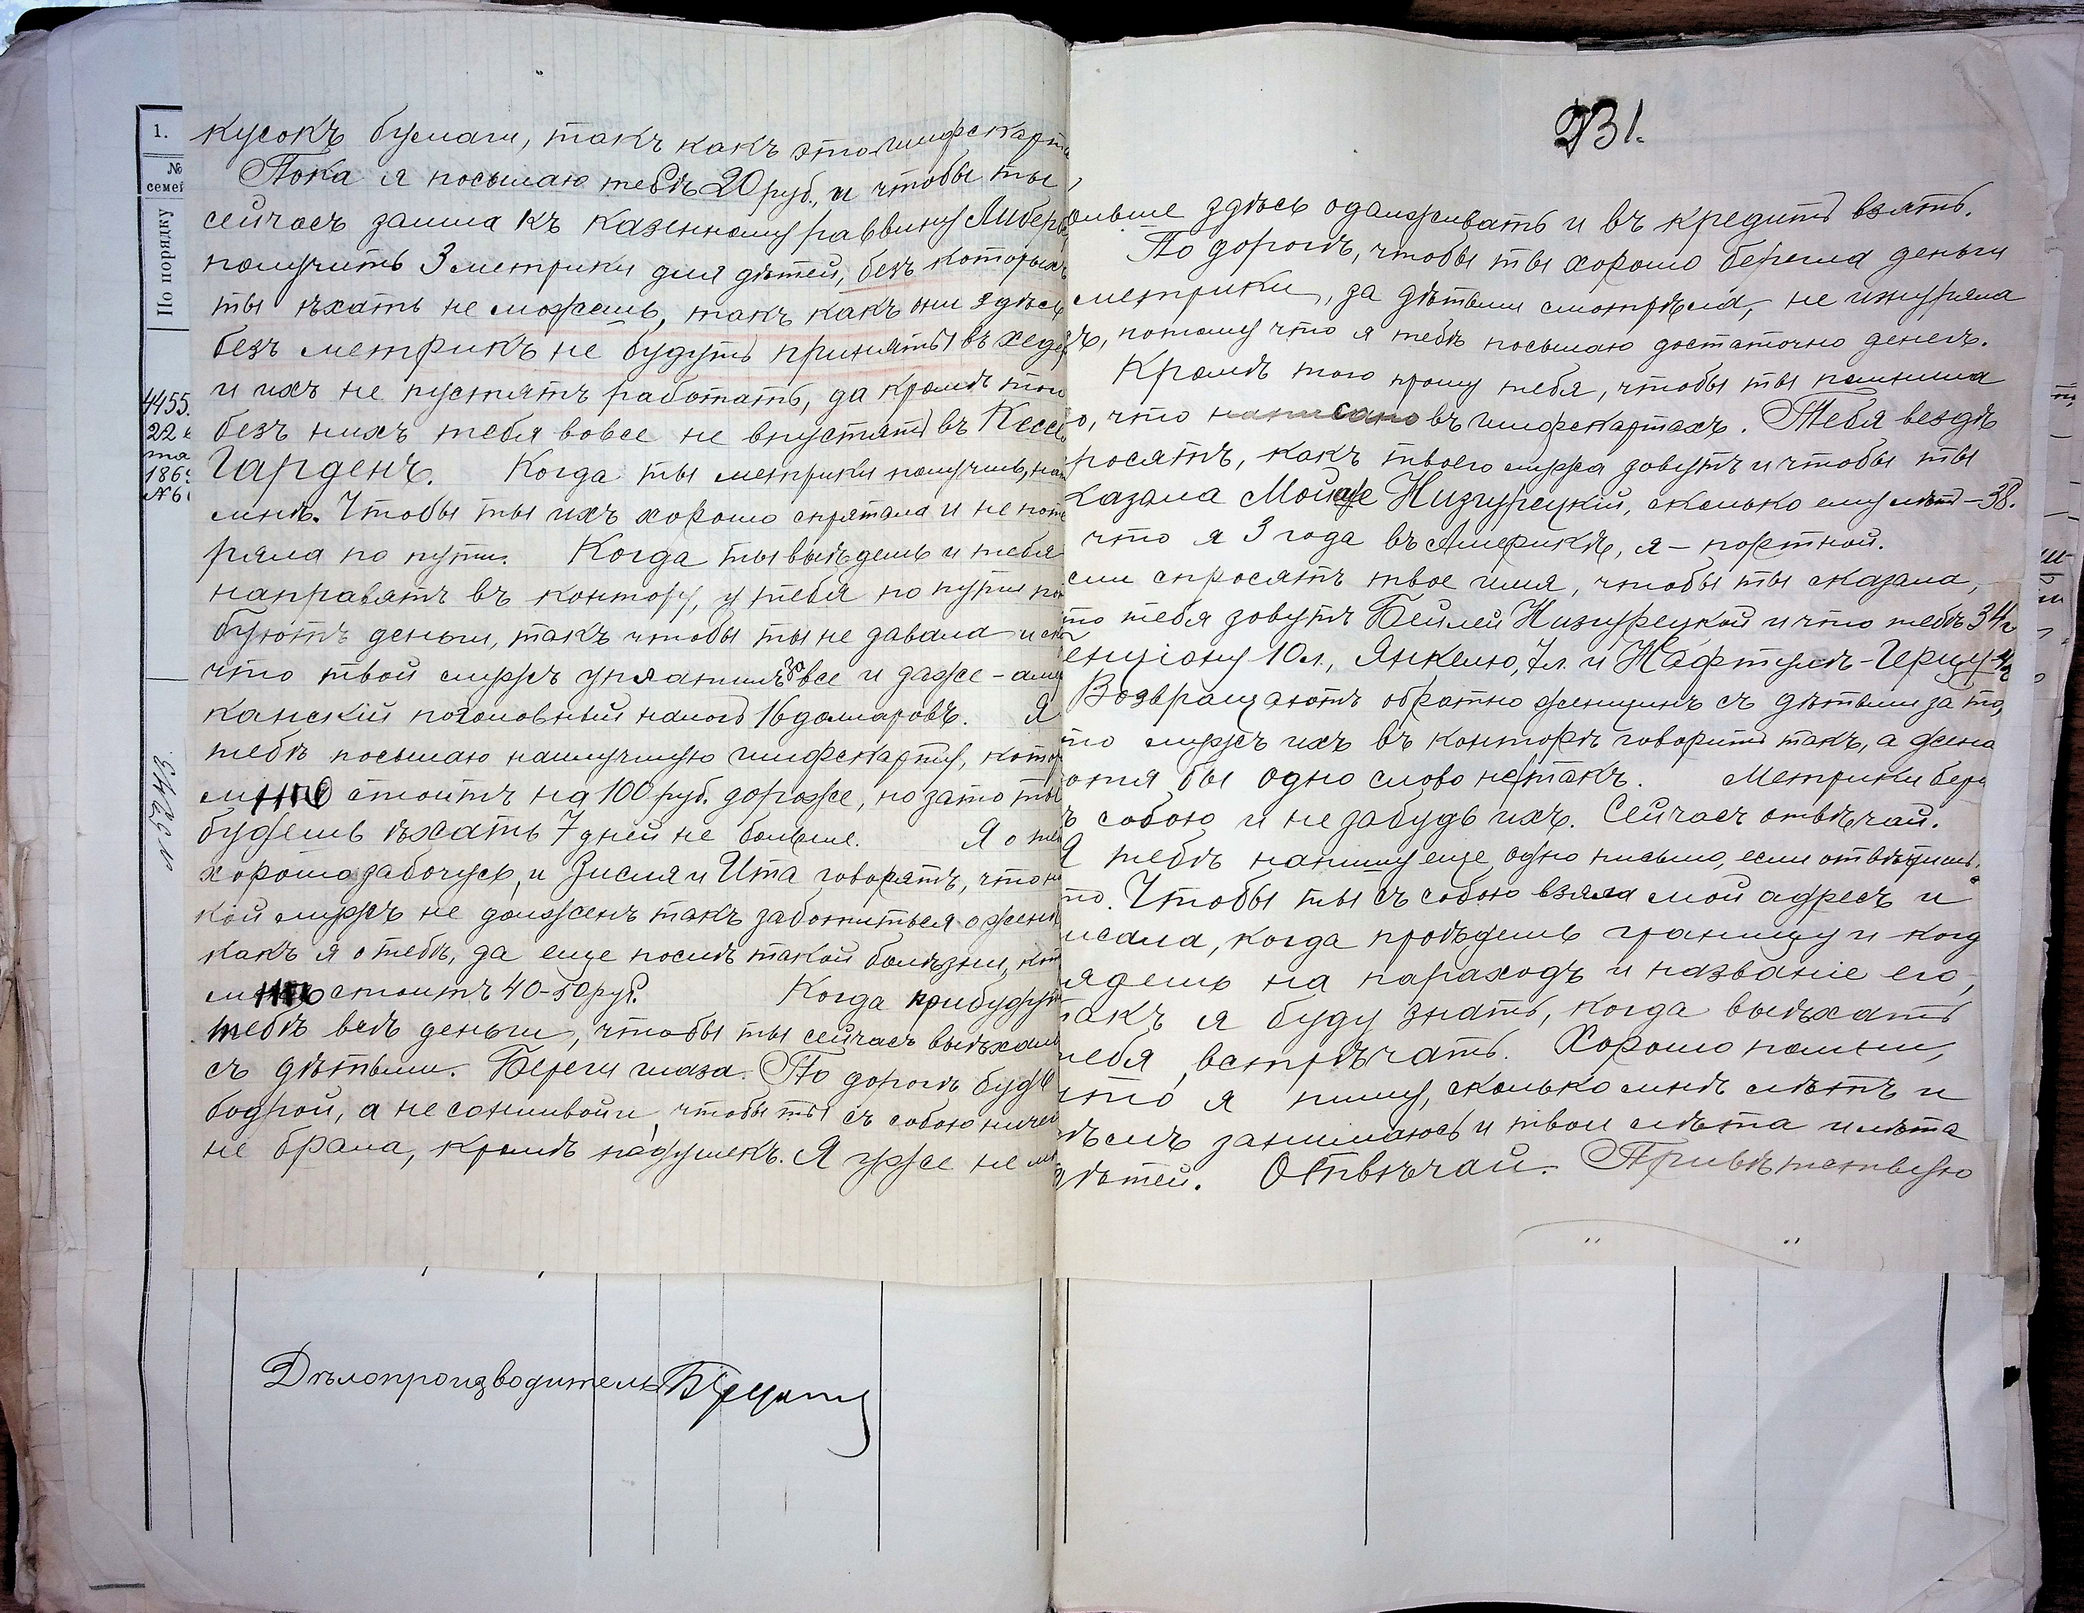 1.
№
семей
По порядку
4455.
22
1869
№6
№5243
кусокъ бумаги, такъ какъ это шифскарта
Пока я посылаю тебѣ 20 руб., и чтобы ты
сейчасъ зашла къ казенному раввину
получить 3 метрики для дѣтей, безъ которыхъ
ты ѣхать не можешь, такъ какъ они здѣсь
безъ метрикъ не будутъ приняты въ хедеръ
и ихъ не пустятъ работать, да кромѣ того
безъ нихъ тебя вовсе не впустятъ въ Кессель
Гарденъ. Когда ты метрики получишь,
мнѣ. Чтобы ты ихъ хорошо спрятала и не поте
ряла по пути. Когда ты выѣдешь и тебя
направятъ въ контору, у тебя по пути
буютъ деньги, такъ чтобы ты не давала
что твой мужъ уплатилъ за все и даже – аме
канскій поголовный налогъ 16 долларовъ. Я
тебѣ посылаю наилучшую шифскарту, котор
мнѣ стоитъ на 100 руб. дороже, но зато ты
будешь ѣхать 7 дней не больше. Я о те
хорошо забочусь, и Зисля и Ита говорятъ, что
кой мужъ не долженъ такъ заботиться о женѣ
какъ я о тебѣ, да еще послѣ такой болѣзни,
мнѣ стоитъ 40-50 руб. Когда прибудутъ
тебѣ всѣ деньги, чтобы ты сейчасъ выѣхала
съ дѣтьми. Береги глаза. По дорогѣ будь
бодрой, а не сонливой и чтобы ты съ собою ничего
не брала, кромѣ подушекъ. Я уже не мо
Дѣлопроизводитель
231.
ольше здѣсь одалживать и въ кредитъ взять.
По дорогѣ, чтобы ты хорошо берегла деньги
метрики, за дѣтьми смотрѣла, не изнуряла
ъ, потому что я тебѣ посылаю достаточно денегъ.
Кромѣ того прошу тебя, чтобы ты помнила
о, что написано въ шифскартахъ. Тебя вездѣ
просятъ, какъ твоего мужа зовутъ и чтобы ты
казала Мойше Низгурецкій, сколько ему лѣтъ – 38.
что я 3 года въ Америкѣ, я – портной.
сли спросятъ твое имя, чтобы ты сказала,
то тебя зовутъ Бейлей Низгурецкой и что тебѣ 34 г
Бенціону 10 л., Янкелю, 7 л. и Нафтулѣ-Герцу 4
Возвращаютъ обратно женщинъ съ дѣтьми за то,
то мужъ ихъ въ конторѣ говоритъ такъ, а жена
отя бы одно слово не такъ. Метрики бери
ъ собою и не забудь ихъ. Сейчасъ отвѣчай.
Я тебѣ напишу еще одно письмо, если отвѣтишь
то. Чтобы ты съ собою взяла мой адресъ и
исала, когда проѣдешь границу и когд
ядешь на параходъ и названіе его,
такъ я буду знать, когда выѣхать
тебя встрѣчать. Хорошо помни,
что я пишу, сколько мнѣ лѣтъ и
чѣмъ занимаюсь и твои лѣта и лѣта
дѣтей. Отвѣчай. Привѣтствую